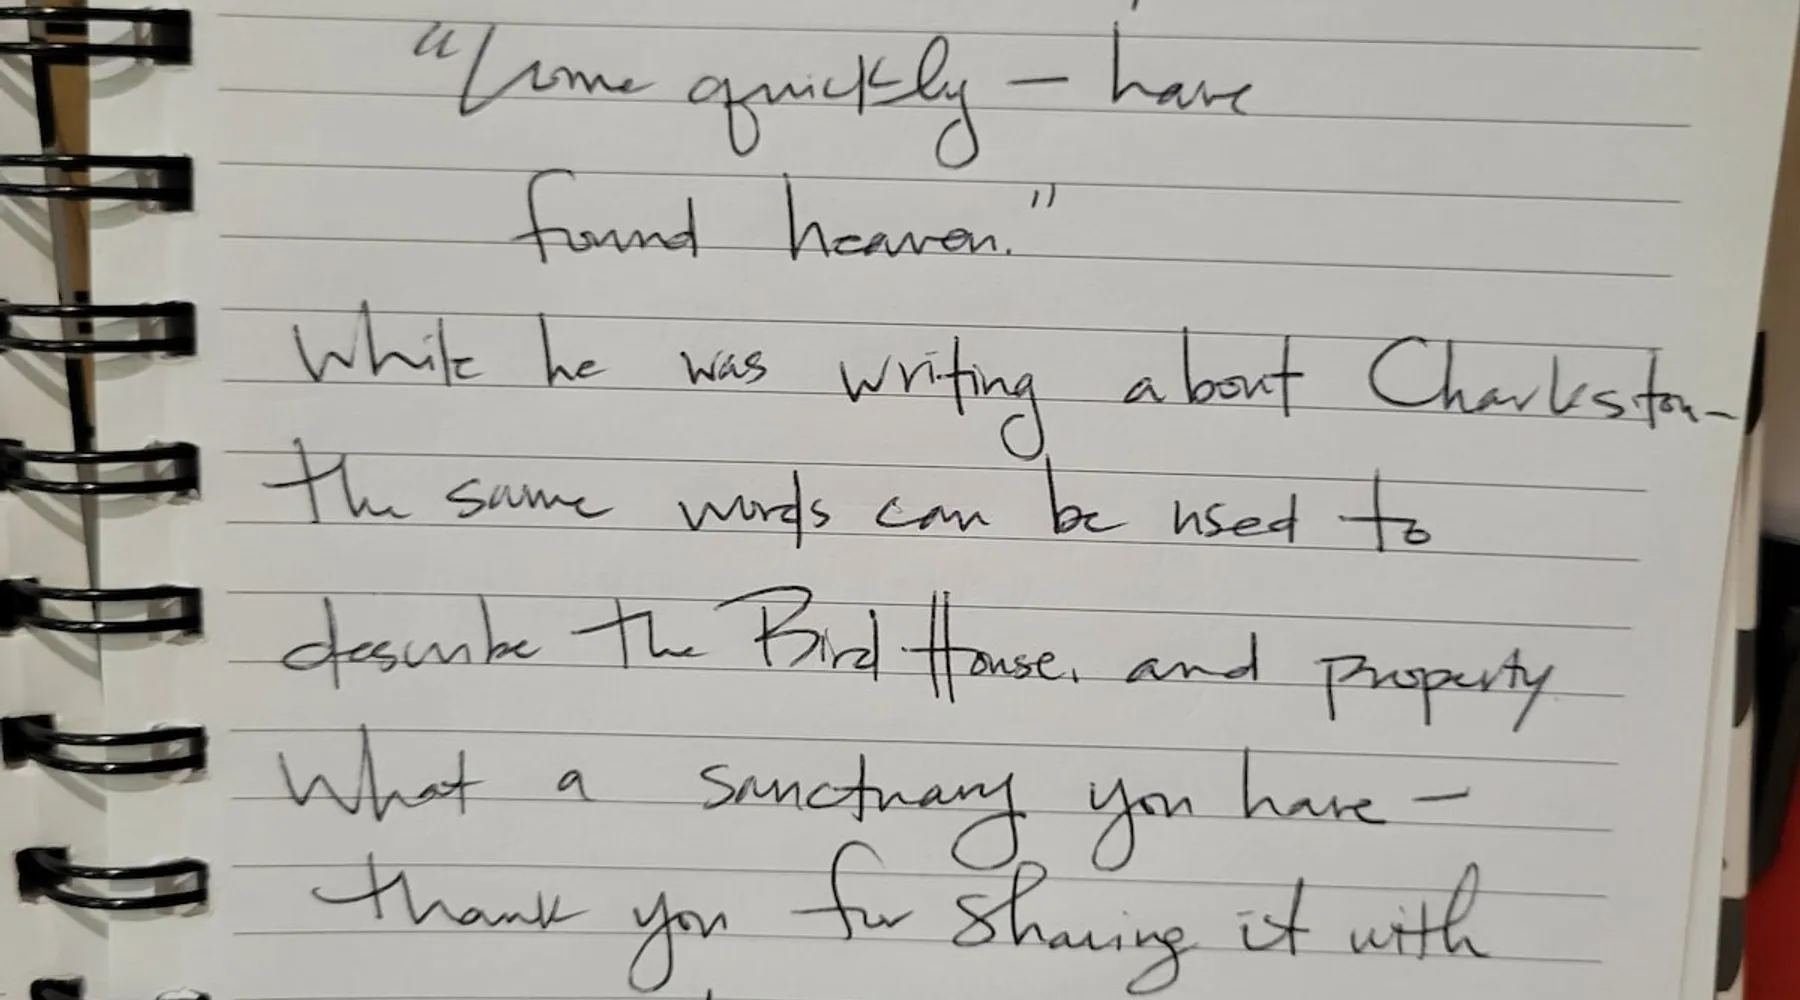 "Come quickly – have
found heaven."
While he was writing about Charleston –
the same words can be used to
describe the Bird House. and property
What a sanctuary you have –
thank you for sharing it with